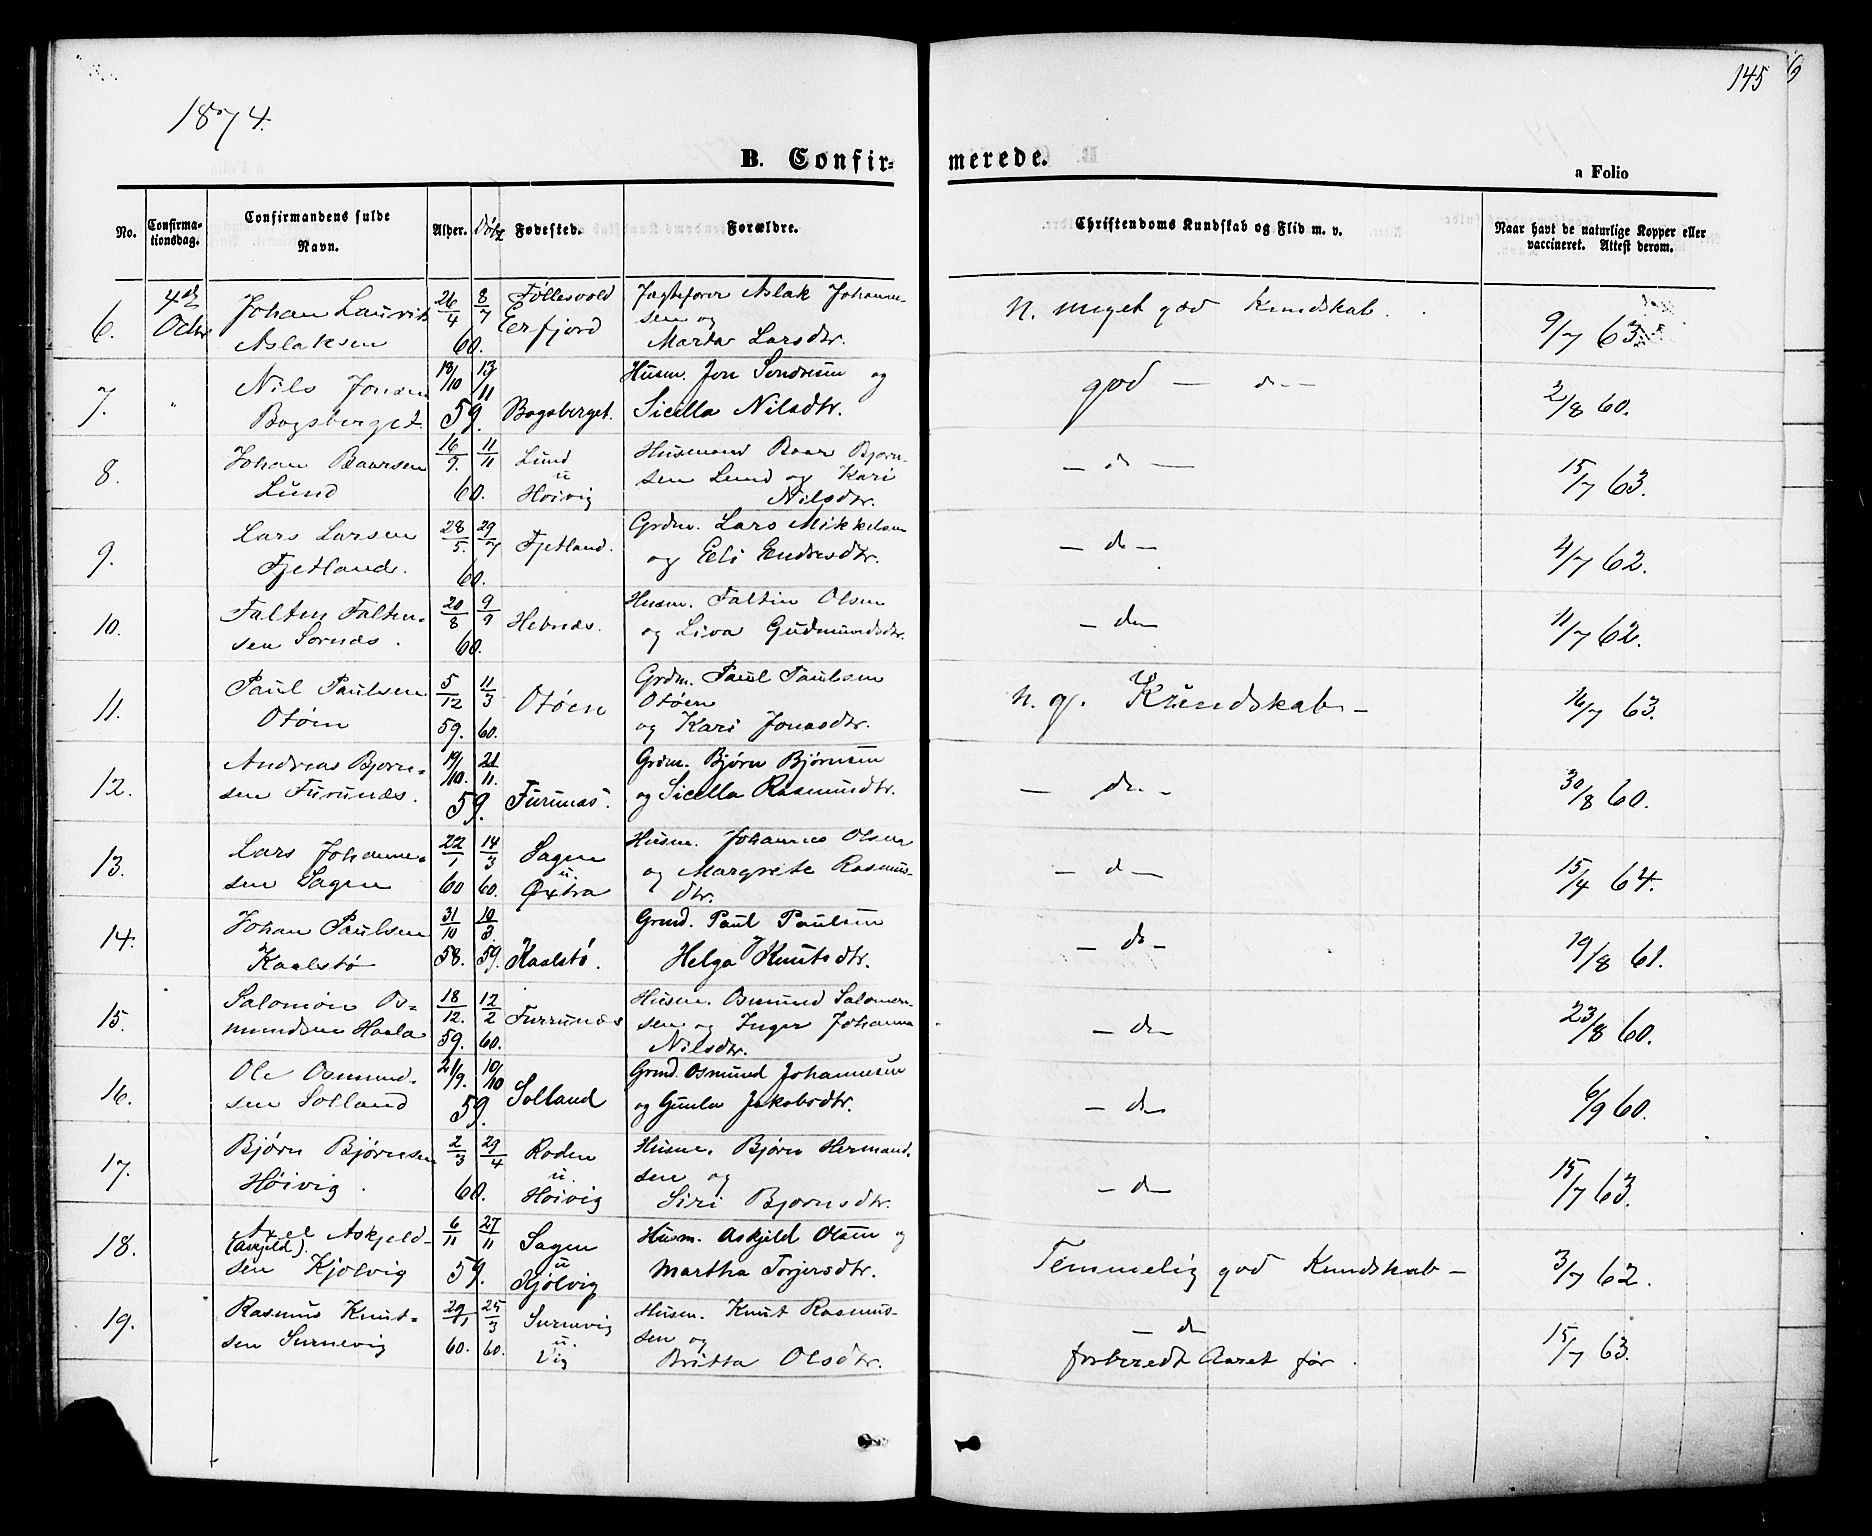 145
1874.
B. Confir=
merede.
a Folio
No.
Confirma-
tionsdag.
Confirmandens fulde
Navn.
Alder.
Døbt
Fødested.
Forældre.
Christendoms Kundskab og Flid m. v.
Naar havt de naturlige Kopper eller
vaccineret. Attest derom.
6. 4de Johan Laurits 26/4 8/7 Føllesvold Jagtefører Aslak Johanne- N. meget god Kundskab. 9/7 63.
Octbr Aslaksen 60. Erfjord sen og
Marta Larsdtr.
7. " Nils Jonsen 18/10 13/11 Husm. Jon Sendresen og god — do — 2/8 60.
Bogsberget 59. Bogsberget. Sicella Nilsdtr.
8. Johan Baarsen 16/9. 11/11 Lund Husmand Baar Bjørn- — do — 15/7 63.
Lund 60. u Høivig sen Lund og Kari
Nilsdtr.
9. Lars Larsen 28/5. 29/7 Fjetland. Grdm. Lars Mikkelsen — do — 4/7 62.
Fjetland. 60. og Eli Endresdtr.
10. Falten Falten- 20/8 9/9 Hebnæs. Husm. Faltin Olsen — do — 11/7 62.
sen Sørnæs. 60. og Liva Gudmundsdtr.
11. Paul Paulsen 5/12 11/3 Otøen Grdm. Paul Paulsen N. g. Kundskab — 16/7 63.
Otøen 59. 60. Otøen
og Kari Jonasdtr.
12. Andreas Bjørn- 19/10. 21/11. Grdm. Bjørn Bjørnsen — do — 30/8 60.
sen Furunæs. 59. Furunæs. og Sicella Rasmusdtr.
13. Lars Johanne- 22/1 14/3 Sagen Husm. Johannes Olsen — do — 15/4 64.
sen Sagen 60 60. u. Øxtra og Margrete Rasmus-
dtr.
14. Johan Paulsen 31/10 10/3. Grmd. Paul Paulsen — do — 19/8 61.
Kaalstø 58. 59. Kaalstø. Helga Knutsdtr.
15. Salomon Os- 18/12. 12/2 Furrunæs Husm. Osmund Salomon- — do — 23/8 60.
mundsen Haala 59. 60. sen og Inger Johanna
Nilsdtr.
16. Ole Osmund- 21/9. 10/10 Solland Grmd. Osmund Johannesen — do — 6/9 60.
sen Solland 59. og Gunla Jakobsdtr.
17. Bjørn Bjørnsen 2/3 29/4 Roden Husm. Bjørn Hermand- — do — 15/7 63.
Høivig. 60. u. Høivig sen og
Siri Bjørnsdtr.
18. Axel Askjeld- 6/11 27/11 Sagen Husm. Askjeld Olsen og Temmelig god Kundskab — 3/7 62.
(Askjeld).
sen Kjølvig 59. u Kjølvig Martha Torjersdtr.
19. Rasmus Knut- 29/1 25/3 Surnevig Husm. Knut Rasmus- — do — 15/7 63.
sen Surnevig 60. 60. u. Vig sen og forberedt Aaret før.
Britta Olsdtr.